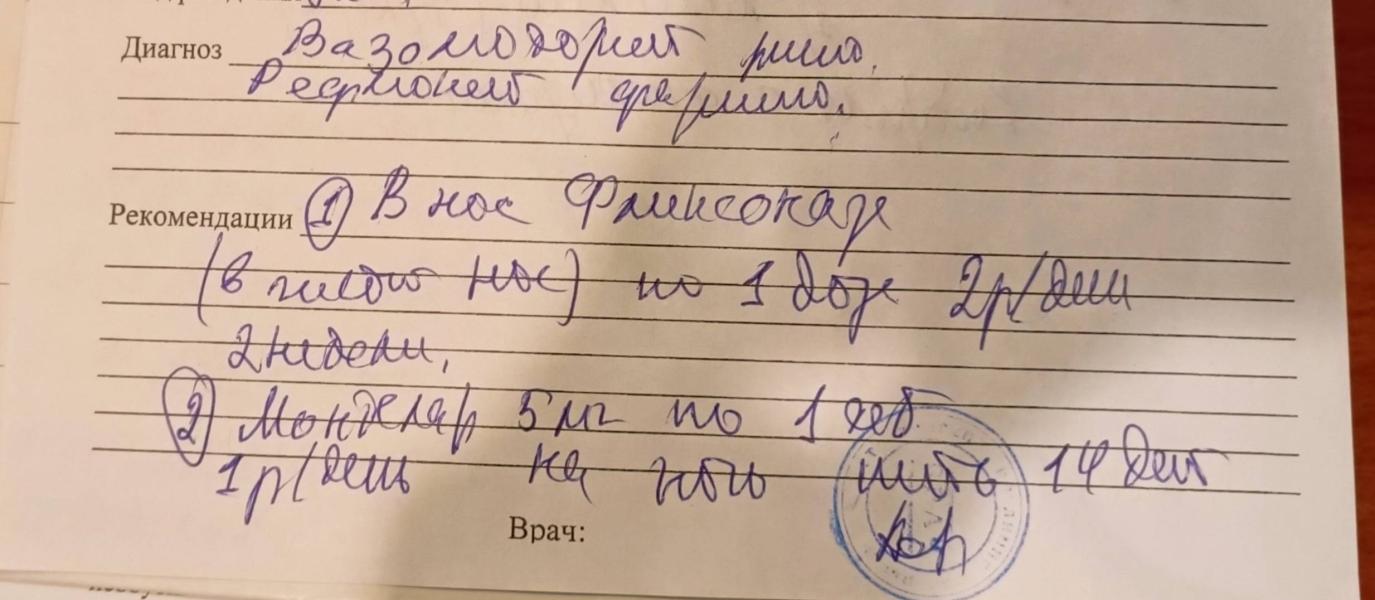 Диагноз Вазомоторный рино.
Рефлюксный фаринго.
Рекомендации ① В нос Фликсоназе
(в чистый нос) по 1 дозе 2р/день
2 недели,
② Монтелар 5 мг по 1 таб
1 р/день на ночь пить 14 дней
Врач: